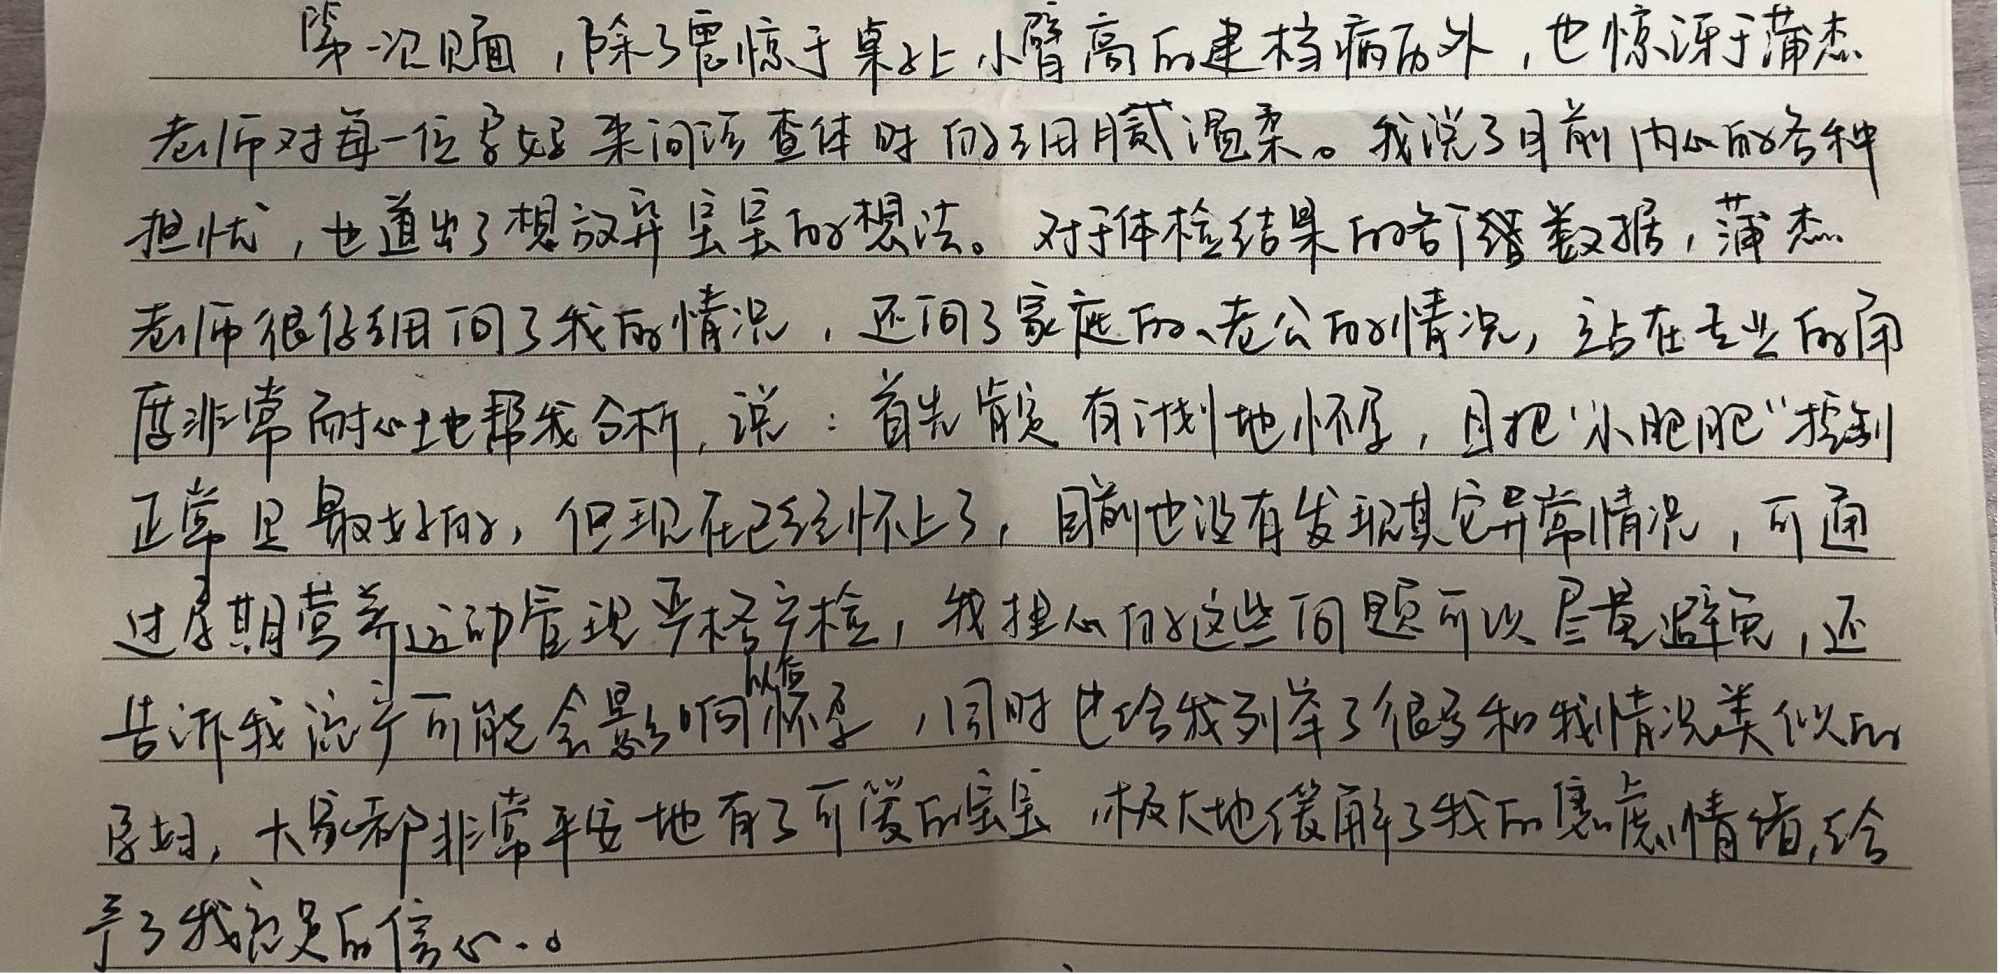 第一次见面，除了震惊于桌上小臂高的建档病历外，也惊讶于蒲杰
老师对每一位孕妇来问诊查体时的细腻温柔。我说了目前内心的各种
担忧，也道出了想放弃宝宝的想法。对于体检结果的各项数据，蒲杰
老师很仔细问了我的情况，还问了家庭的、老公的情况，站在专业的角
度非常耐心地帮我分析，说：首先肯定有计划地怀孕，且把“小肥肥”控制
正常是最好的，但现在已经怀上了，目前也没有发现其它异常情况，可通
过孕期营养运动管理严格产检，我担心的这些问题可以尽量避免，还
告诉我流产可能会影响以后怀孕，同时也给我列举了很多和我情况类似的
孕妇，大家都非常平安地有了可爱的宝宝，极大地缓解了我的焦虑情绪，给
予了我充足的信心。。